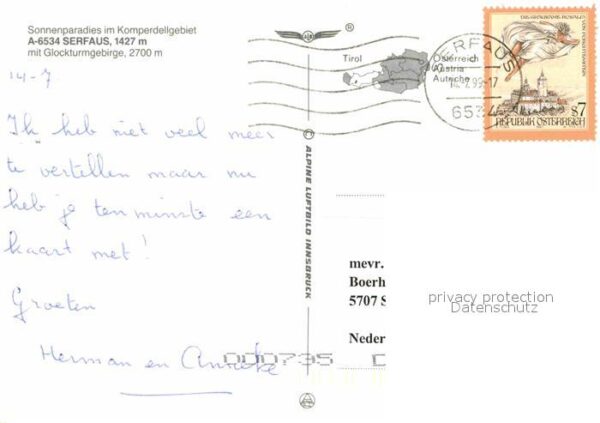 Sonnenparadies im Komperdellgebiet
A-6534 SERFAUS, 1427 m
mit Glockturmgebirge, 2700 m
14-7
Ik heb niet veel meer
te vertellen maar nu
heb je ten minste een
kaart met!
Groeten
Herman en Anneke
ALPINE LUFTBILD INNSBRUCK
Tirol
Österreich
Austria
Autriche
SERFAUS
99-17
6534
REPUBLIK ÖSTERREICH
S7
mevr.
Boerh
5707 S
Neder
000735
privacy protection
Datenschutz